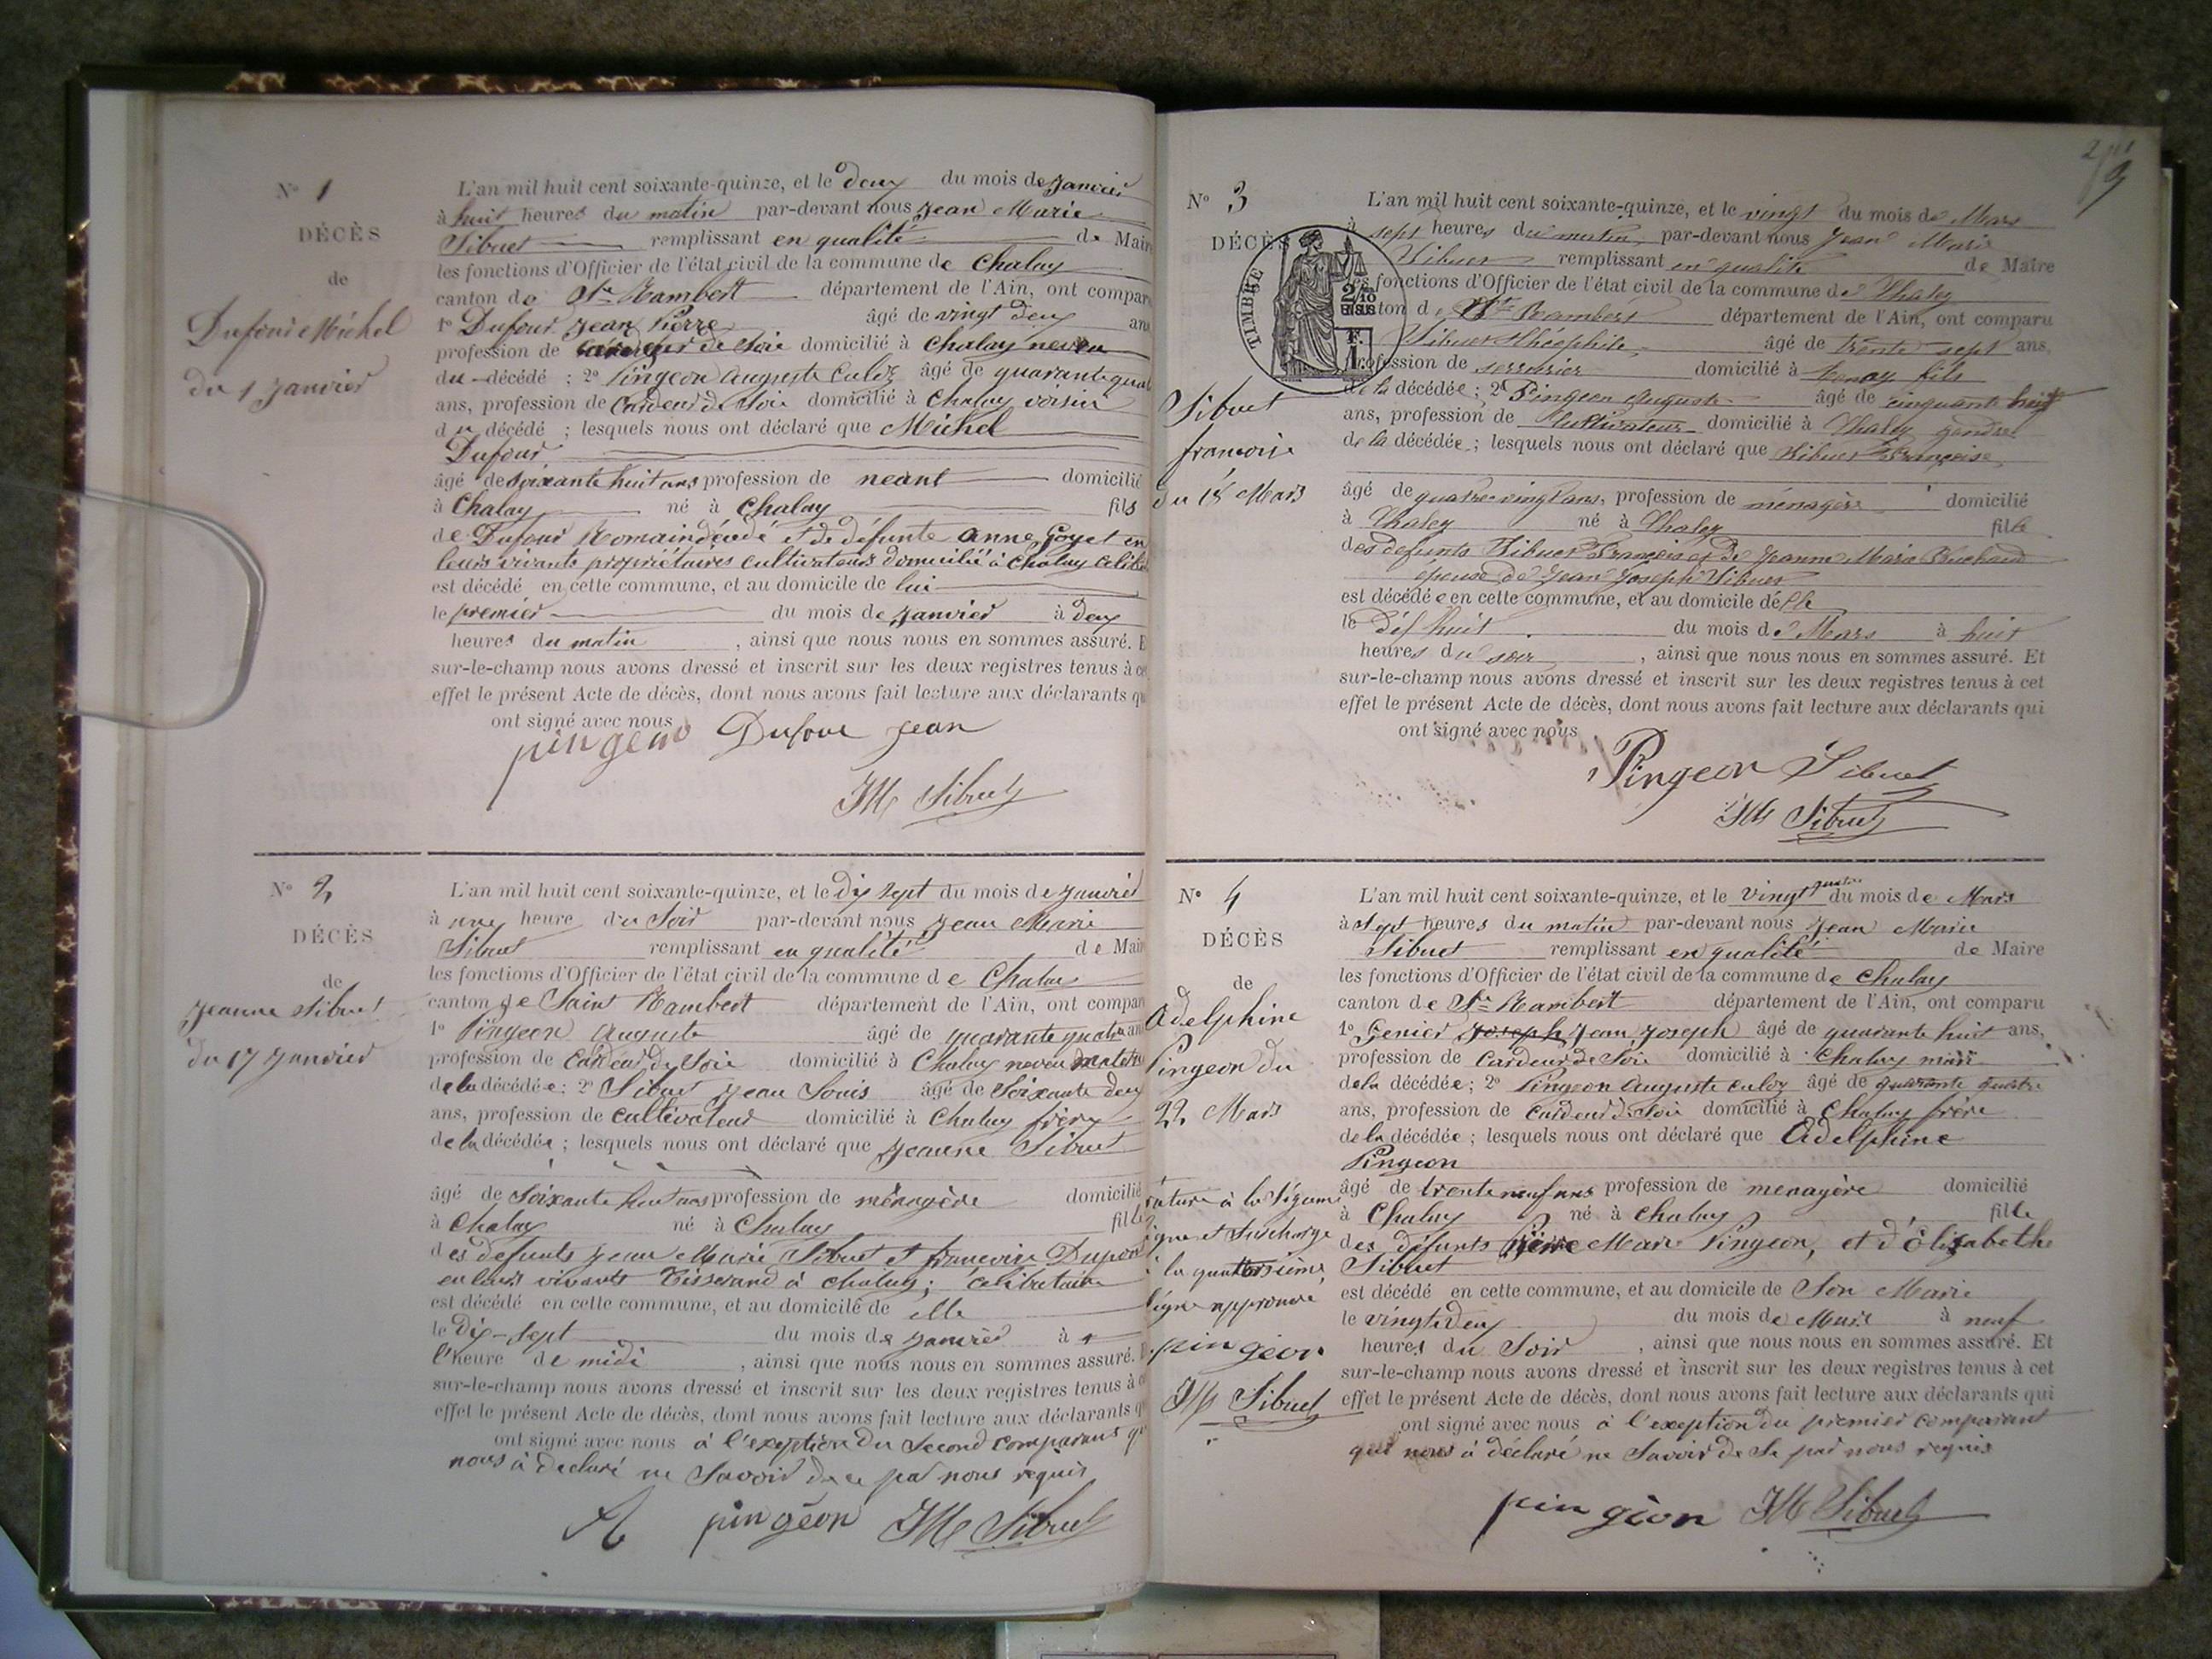 N° 1
DÉCÈS
de
Dufour Michel
du 1 Janvier
L'an mil huit cent soixante-quinze, et le deux du mois de Janvier
à huit heures du matin par-devant nous Jean Marie
Sibuet remplissant en qualité de Maire
les fonctions d'Officier de l'état civil de la commune de Chaley
canton de St Rambert département de l'Ain, ont compar
1° Dufour Jean Pierre âgé de vingt deux ans
profession de cardeur de Soie domicilié à Chaley neveu
du décédé ; 2° Pingeon Auguste Culoz âgé de quarante quat
ans, profession de Cardeur de Soie domicilié à Chaley voisin
du décédé ; lesquels nous ont déclaré que Michel
Dufour
âgé de soixante huit ans profession de néant domicilié
à Chaley né à Chaley fils
de Dufour Romain décédé et de défunte Anne Goyet en
leurs vivants propriétaires cultivateurs domicilié à Chaley célib
est décédé en cette commune, et au domicile de lui
le premier du mois de Janvier à deux
heures du matin , ainsi que nous nous en sommes assuré. E
sur-le-champ nous avons dressé et inscrit sur les deux registres tenus à ce
effet le présent Acte de décès, dont nous avons fait lecture aux déclarants qu
ont signé avec nous
pingeon Dufour Jean
JM Sibuet
N° 2
DÉCÈS
de
Jeanne Sibuet
du 17 Janvier
L'an mil huit cent soixante-quinze, et le dix sept du mois de Janvier
à une heure du Soir par-devant nous Jean Marie
Sibuet remplissant en qualité de Mair
les fonctions d'Officier de l'état civil de la commune de Chaley
canton de Saint Rambert département de l'Ain, ont compar
1° Pingeon Auguste âgé de quarante quatre an
profession de Cardeur de Soie domicilié à Chaley neveu
de la décédée : 2° Sibuet Jean Louis âgé de Soixante deux
ans, profession de cultivateur domicilié à Chaley frère
de la décédée ; lesquels nous ont déclaré que Jeanne Sibuet
âgé de Soixante ans profession de ménagère domicilié
à Chaley né à Chaley fille
des défunts Jean Marie Sibuet et françoise Dupon
en leurs vivants Tisserand à Chaley ; célibataire
est décédé en cette commune, et au domicile de elle
le Dix-sept du mois de Janvier à
l'heure de midi , ainsi que nous nous en sommes assuré.
sur-le-champ nous avons dressé et inscrit sur les deux registres tenus à c
effet le présent Acte de décès, dont nous avons fait lecture aux déclarants q
ont signé avec nous à l'exeption du second comparant qu
nous à déclaré ne Savoir de ce par nous requis
pingéon JM Sibuet
N° 3
DÉCÈS
TIMBRE
2/10 EN SUS
F. 1.
Sibuet
françoise
du 18 Mars
L'an mil huit cent soixante-quinze, et le vingt du mois de Mars
à sept heures du matin, par-devant nous Jean Marie
Sibuet remplissant en qualité de Maire
les fonctions d'Officier de l'état civil de la commune de Chaley
canton de St Rambert département de l'Ain, ont comparu
Sibuet Théophile, âgé de trente-sept ans,
profession de serrurier domicilié à Tenay fils
de la décédée ; 2° Pingeon Auguste âgé de cinquante huit
ans, profession de Cultivateur domicilié à Chaley gendre
de la décédée ; lesquels nous ont déclaré que Sibuet Françoise,
âgé de quatre-vingt ans, profession de ménagère domicilié
à Chaley né à Chaley fille
des défunts Sibuet François et de Jeanne Marie
épouse de Jean Joseph Sibuet
est décédée en cette commune, et au domicile d'elle
le Dix huit du mois de Mars à huit
heures du soir , ainsi que nous nous en sommes assuré. Et
sur-le-champ nous avons dressé et inscrit sur les deux registres tenus à cet
effet le présent Acte de décès, dont nous avons fait lecture aux déclarants qui
ont signé avec nous
Pingeon Sibuet
JM Sibuet
N° 4
DÉCÈS
de
Adelphine
Pingeon du
22 Mars
rature à la Sixieme
ligne et Surcharge
à la quatorzieme
ligne approuvé
pingeon
JM Sibuet
L'an mil huit cent soixante-quinze, et le vingt quatre du mois de Mars
à sept heures du matin par-devant nous Jean Marie
Sibuet remplissant en qualité de Maire
les fonctions d'Officier de l'état civil de la commune de Chaley
canton de St Rambert département de l'Ain, ont comparu
1° Genier Joseph Jean Joseph âgé de quarante huit ans,
profession de Cardeur de Soie domicilié à Chaley mari
de la décédée ; 2° Pingeon Auguste Culoz âgé de quarante quatre
ans, profession de Cardeur de Soie domicilié à Chaley frère
de la décédée ; lesquels nous ont déclaré que Adelphine
Pingeon
âgé de trente neuf ans profession de menagère domicilié
à Chaley né à Chaley fille
des défunts Pierre Marie Pingeon, et d'Elisabethe
Sibuet
est décédé en cette commune, et au domicile de Son Marie
le vingt deux du mois de Mars à neuf
heures du Soir , ainsi que nous nous en sommes assuré. Et
sur-le-champ nous avons dressé et inscrit sur les deux registres tenus à cet
effet le présent Acte de décès, dont nous avons fait lecture aux déclarants qui
ont signé avec nous à l'exeption du premier comparant
qui nous à déclaré ne Savoir de Se par nous requis
pingeon JM Sibuet